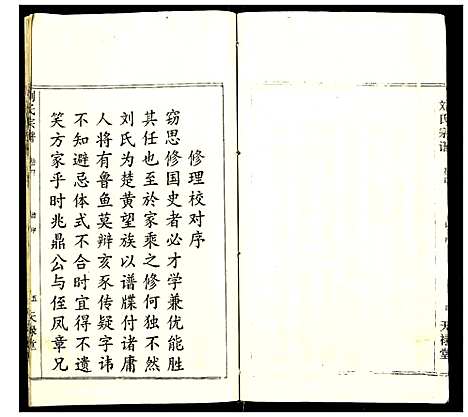 劉氏宗譜
天祿堂
修理校对序
窃思修国史者必才学兼优能胜
其任也至於家乘之修何独不然
刘氏为楚黄望族以谱牒付诸庸
人将有鲁鱼莫辩亥豕传疑字讳
不知避忌体式不合时宜得不遗
笑方家乎时兆鼎公与侄凤章兄
五
天祿堂